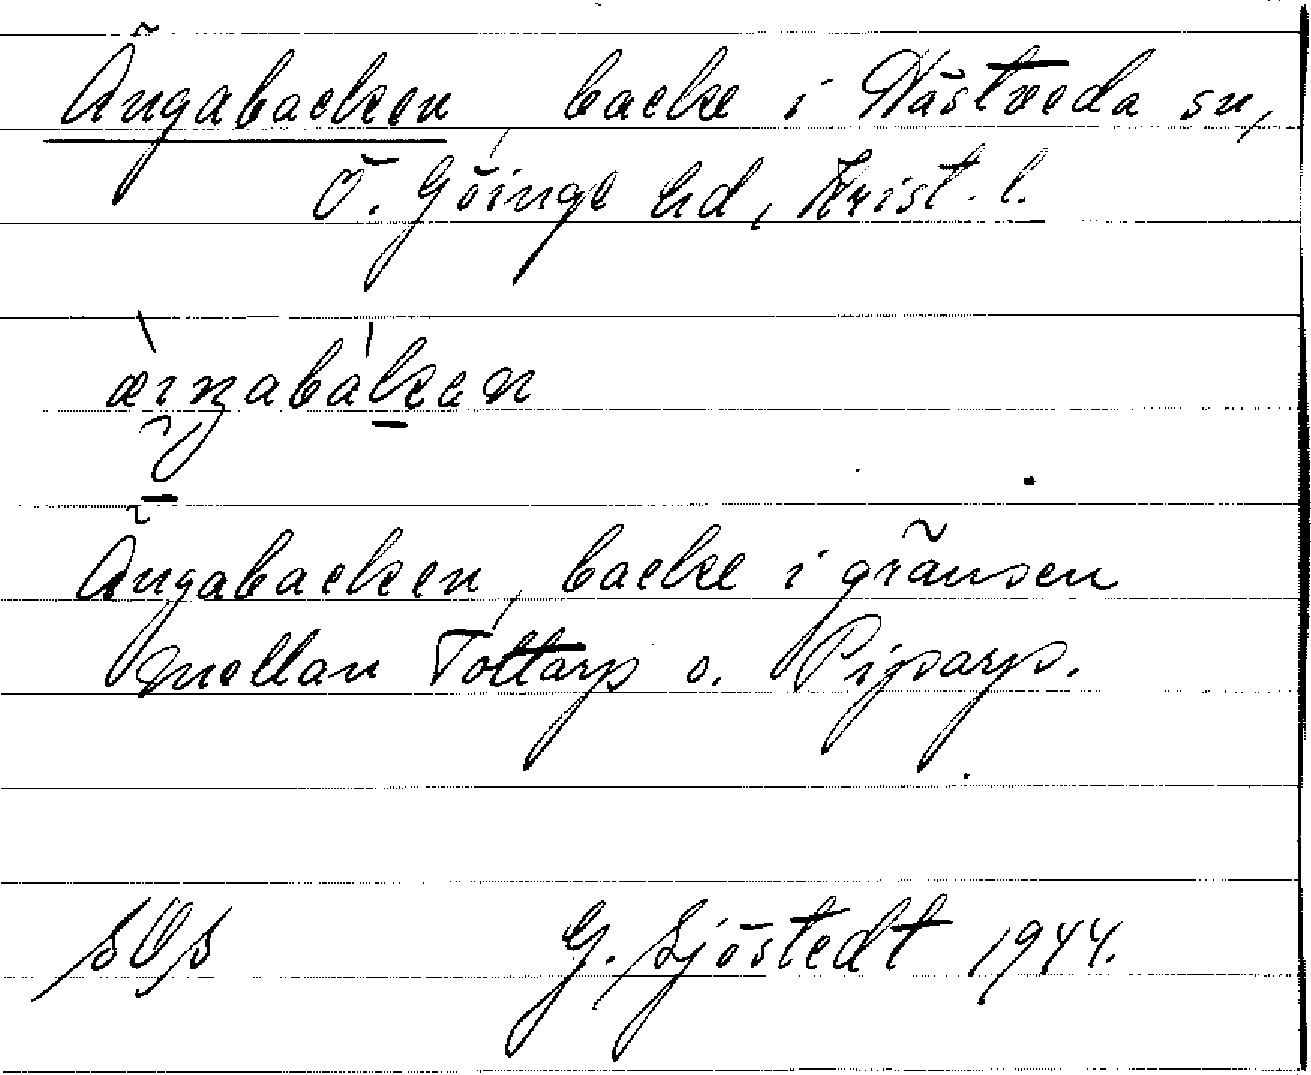 Ängabacken, backe i Hästveda sn,
Ö. Göinge hd, Krist. l.
Ängabacken, backe i gränsen
mellan Tottarp o. Pijsarp.
G. Sjöstedt 1944.